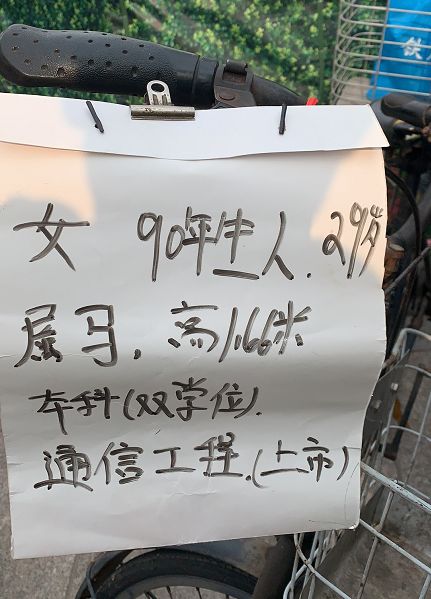 铁
女 90年生人. 29岁
属马. 高1.66米
本科(双学位).
通信工程.(上市)